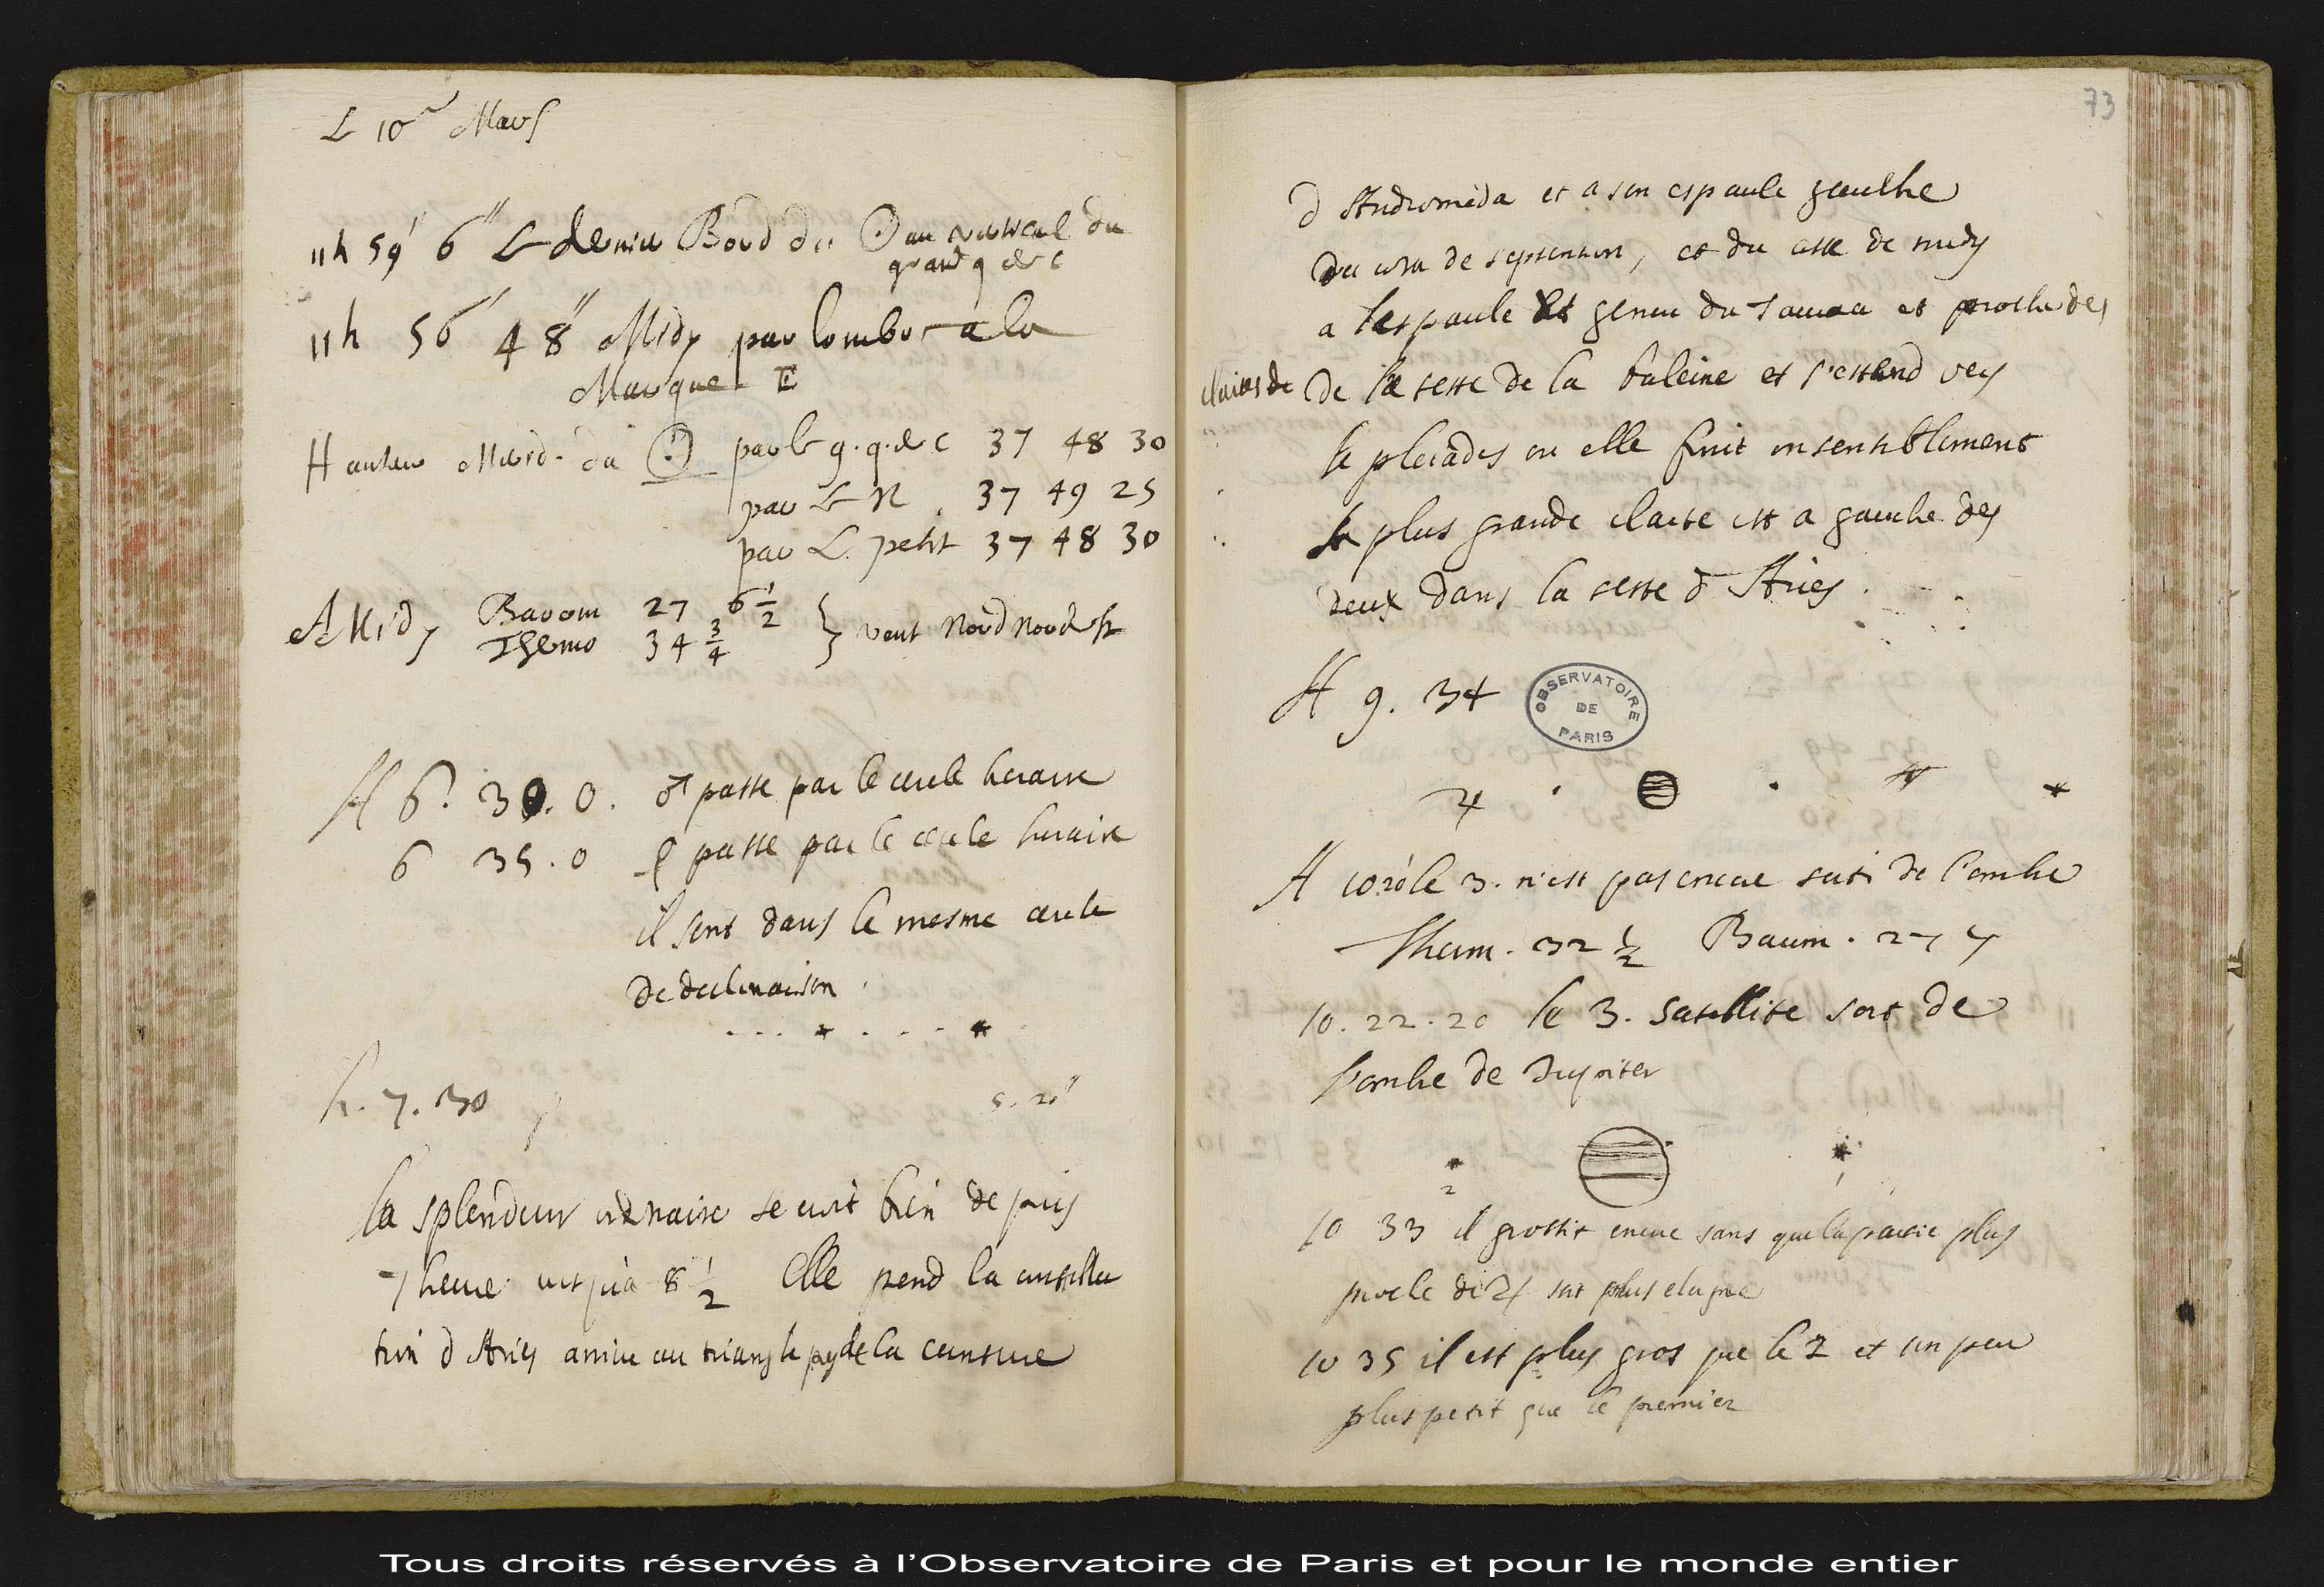 Le 10e Mars
11h 59' 6" Le dernier Bord du ☉ au vertical du
grand q de c
11h 56' 48" Midy par lombre a la
Marque E
Hauteur Merid. du ☉ par le g. q. de c 37 48 30
par Le R. 37 49 25
par Le petit 37 48 30
A Midy Barom 27 6 1/2 } vent Nord Nord Est
Thermo 34 3/4
H 6. 30. 0. ♂ passe par le cercle horaire
6 35. 0 passe par le cercle horaire
il sont dans le mesme cercle
de declinaison
h. 7. 30
5. 20"
la splendeur ordinaire se voit bien depuis
7 heure jusqu'a 8 1/2 Elle prend la constella
tion d Aries arrive au triangle de la ceinture
73
d Andromeda et a son espaule gauche
du costé de septentrion, et du coste de midy
a lespaule et genou du Taurau et proche des
claires de de la teste de la baleine et s'estend vers
le pleiades ou elle finit insensiblement
la plus grande clarte est a gauche des
deux dans la teste d Aries.
H 9. 34
OBSERVATOIRE DE PARIS
4
A 10. 10 le 3. n'est pas encore sorti de l'ombre
Therm. 32 1/2 Barom. 27 7
10. 22. 20 le 3. satellite sort de
l'ombre de Jupiter
2
1
10 33 il grossit encore sans que la partie plus
proche de ♃ soit plus
10 35 il est plus gros que le 2 et un peu
plus petit que le premier
Tous droits réservés à l'Observatoire de Paris et pour le monde entier